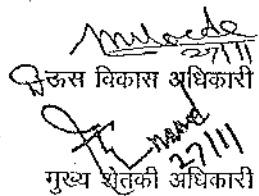 27/11
ऊस विकास अधिकारी
27/11
मुख्य शेतकी अधिकारी